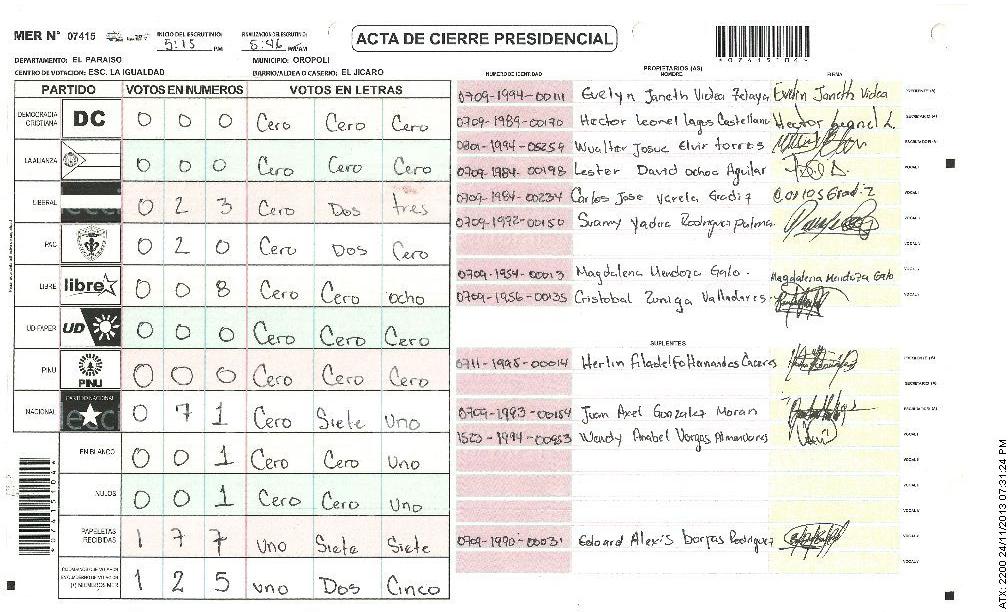 MER N° 07415 INICIO DEL ESCRUTINIO: 5:15 PM FINALIZACION DEL ESCRUTINIO: 5:46 PM/AM ACTA DE CIERRE PRESIDENCIAL
DEPARTAMENTO: EL PARAISO MUNICIPIO: OROPOLI
CENTRO DE VOTACION: ESC. LA IGUALDAD BARRIO/ALDEA O CASERIO: EL JICARO
PARTIDO VOTOS EN NUMEROS VOTOS EN LETRAS
DEMOCRACIA CRISTIANA DC 0 0 0 Cero Cero Cero
LA ALIANZA 0 0 0 Cero Cero Cero
LIBERAL 0 2 3 Cero Dos tres
PAC 0 2 0 Cero Dos Cero
LIBRE libre 0 0 8 Cero Cero ocho
UD-FAPER UD 0 0 0 Cero Cero Cero
PINU PINU 0 0 0 Cero Cero Cero
NACIONAL PARTIDO NACIONAL 0 7 1 Cero Siete Uno
EN BLANCO 0 0 1 Cero Cero Uno
NULOS 0 0 1 Cero Cero Uno
PAPELETAS RECIBIDAS 1 7 7 Uno Siete Siete
1 2 5 uno Dos Cinco
PROPIETARIOS (AS)
NUMERO DE IDENTIDAD NOMBRE FIRMA
0709-1994-00111 Evelyn Janeth Videa Zelaya Evelin Janeth Videa PRESIDENTE (A)
0709-1989-00170 Hector Leonel Lagos Castellano Hector Leonel L. SECRETARIO (A)
0801-1994-05259 Wualter Josue Elvir torres ESCRUTADOR (A)
0709-1984-00198 Lester David ochoa Aguilar VOCAL I
0709-1984-00234 Carlos Jose Varela Gradiz Carlos Gradiz VOCAL
0709-1992-00150 Suanny Yadira Rodriguez palma. VOCAL
VOCAL
0709-1954-00013 Magdalena Mendoza Galo. Magdalena Mendoza Galo VOCAL
0709-1956-00135 Cristobal Zuniga Valladares VOCAL
SUPLENTES
0711-1995-00014 Herlin Filadelfo Hernandes Caceres PRESIDENTE (A)
SECRETARIO (A)
0709-1993-00154 Juan Axel Gonzalez Moran ESCRUTADOR (A)
1523-1994-00953 Wendy Anabel Vargas Almendares VOCAL I
VOCAL
VOCAL
VOCAL
0709-1990-00031 Edoard Alexis Borjas Rodriguez VOCAL
VOCAL
ATX: 2200 24/11/2013 07:31:24 PM